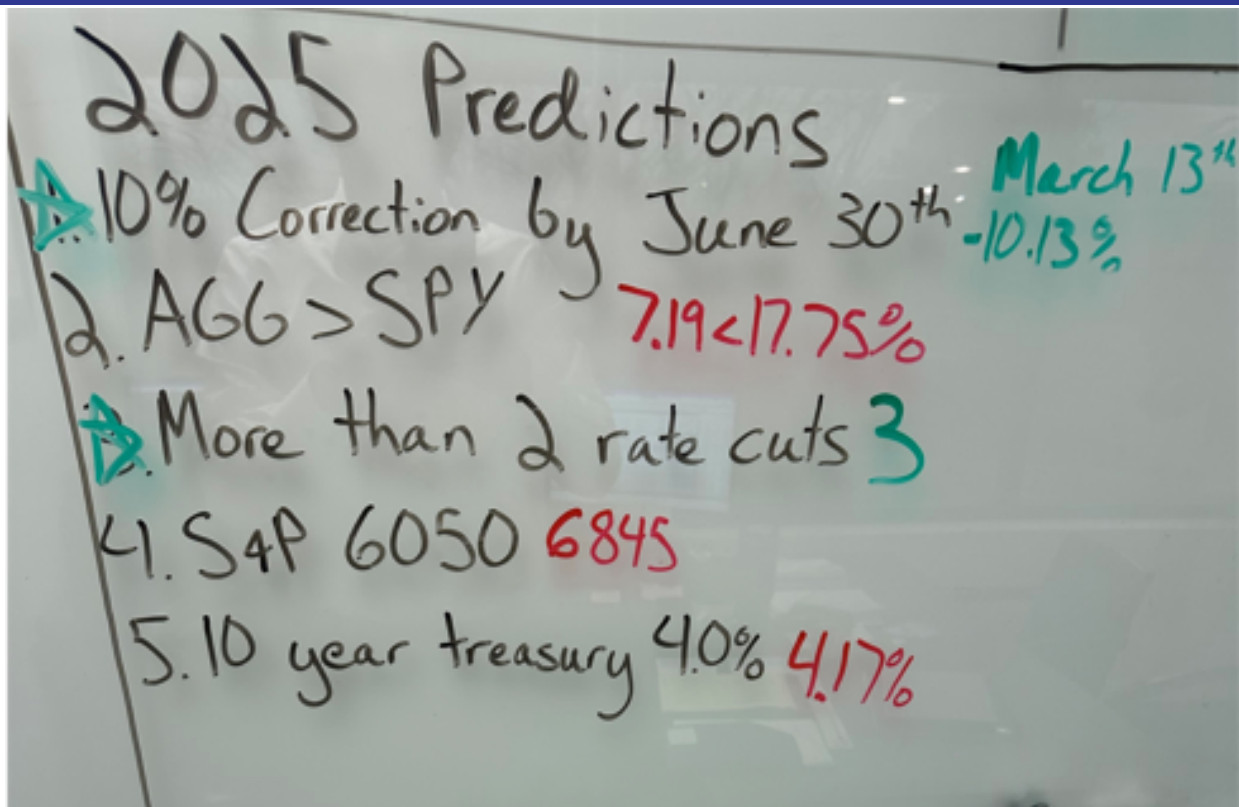 2025 Predictions
10% Correction by June 30th March 13th
-10.13%
2. AGG > SPY 7.19<17.75%
More than 2 rate cuts 3
4. S&P 6050 6845
5. 10 year treasury 4.0% 4.17%